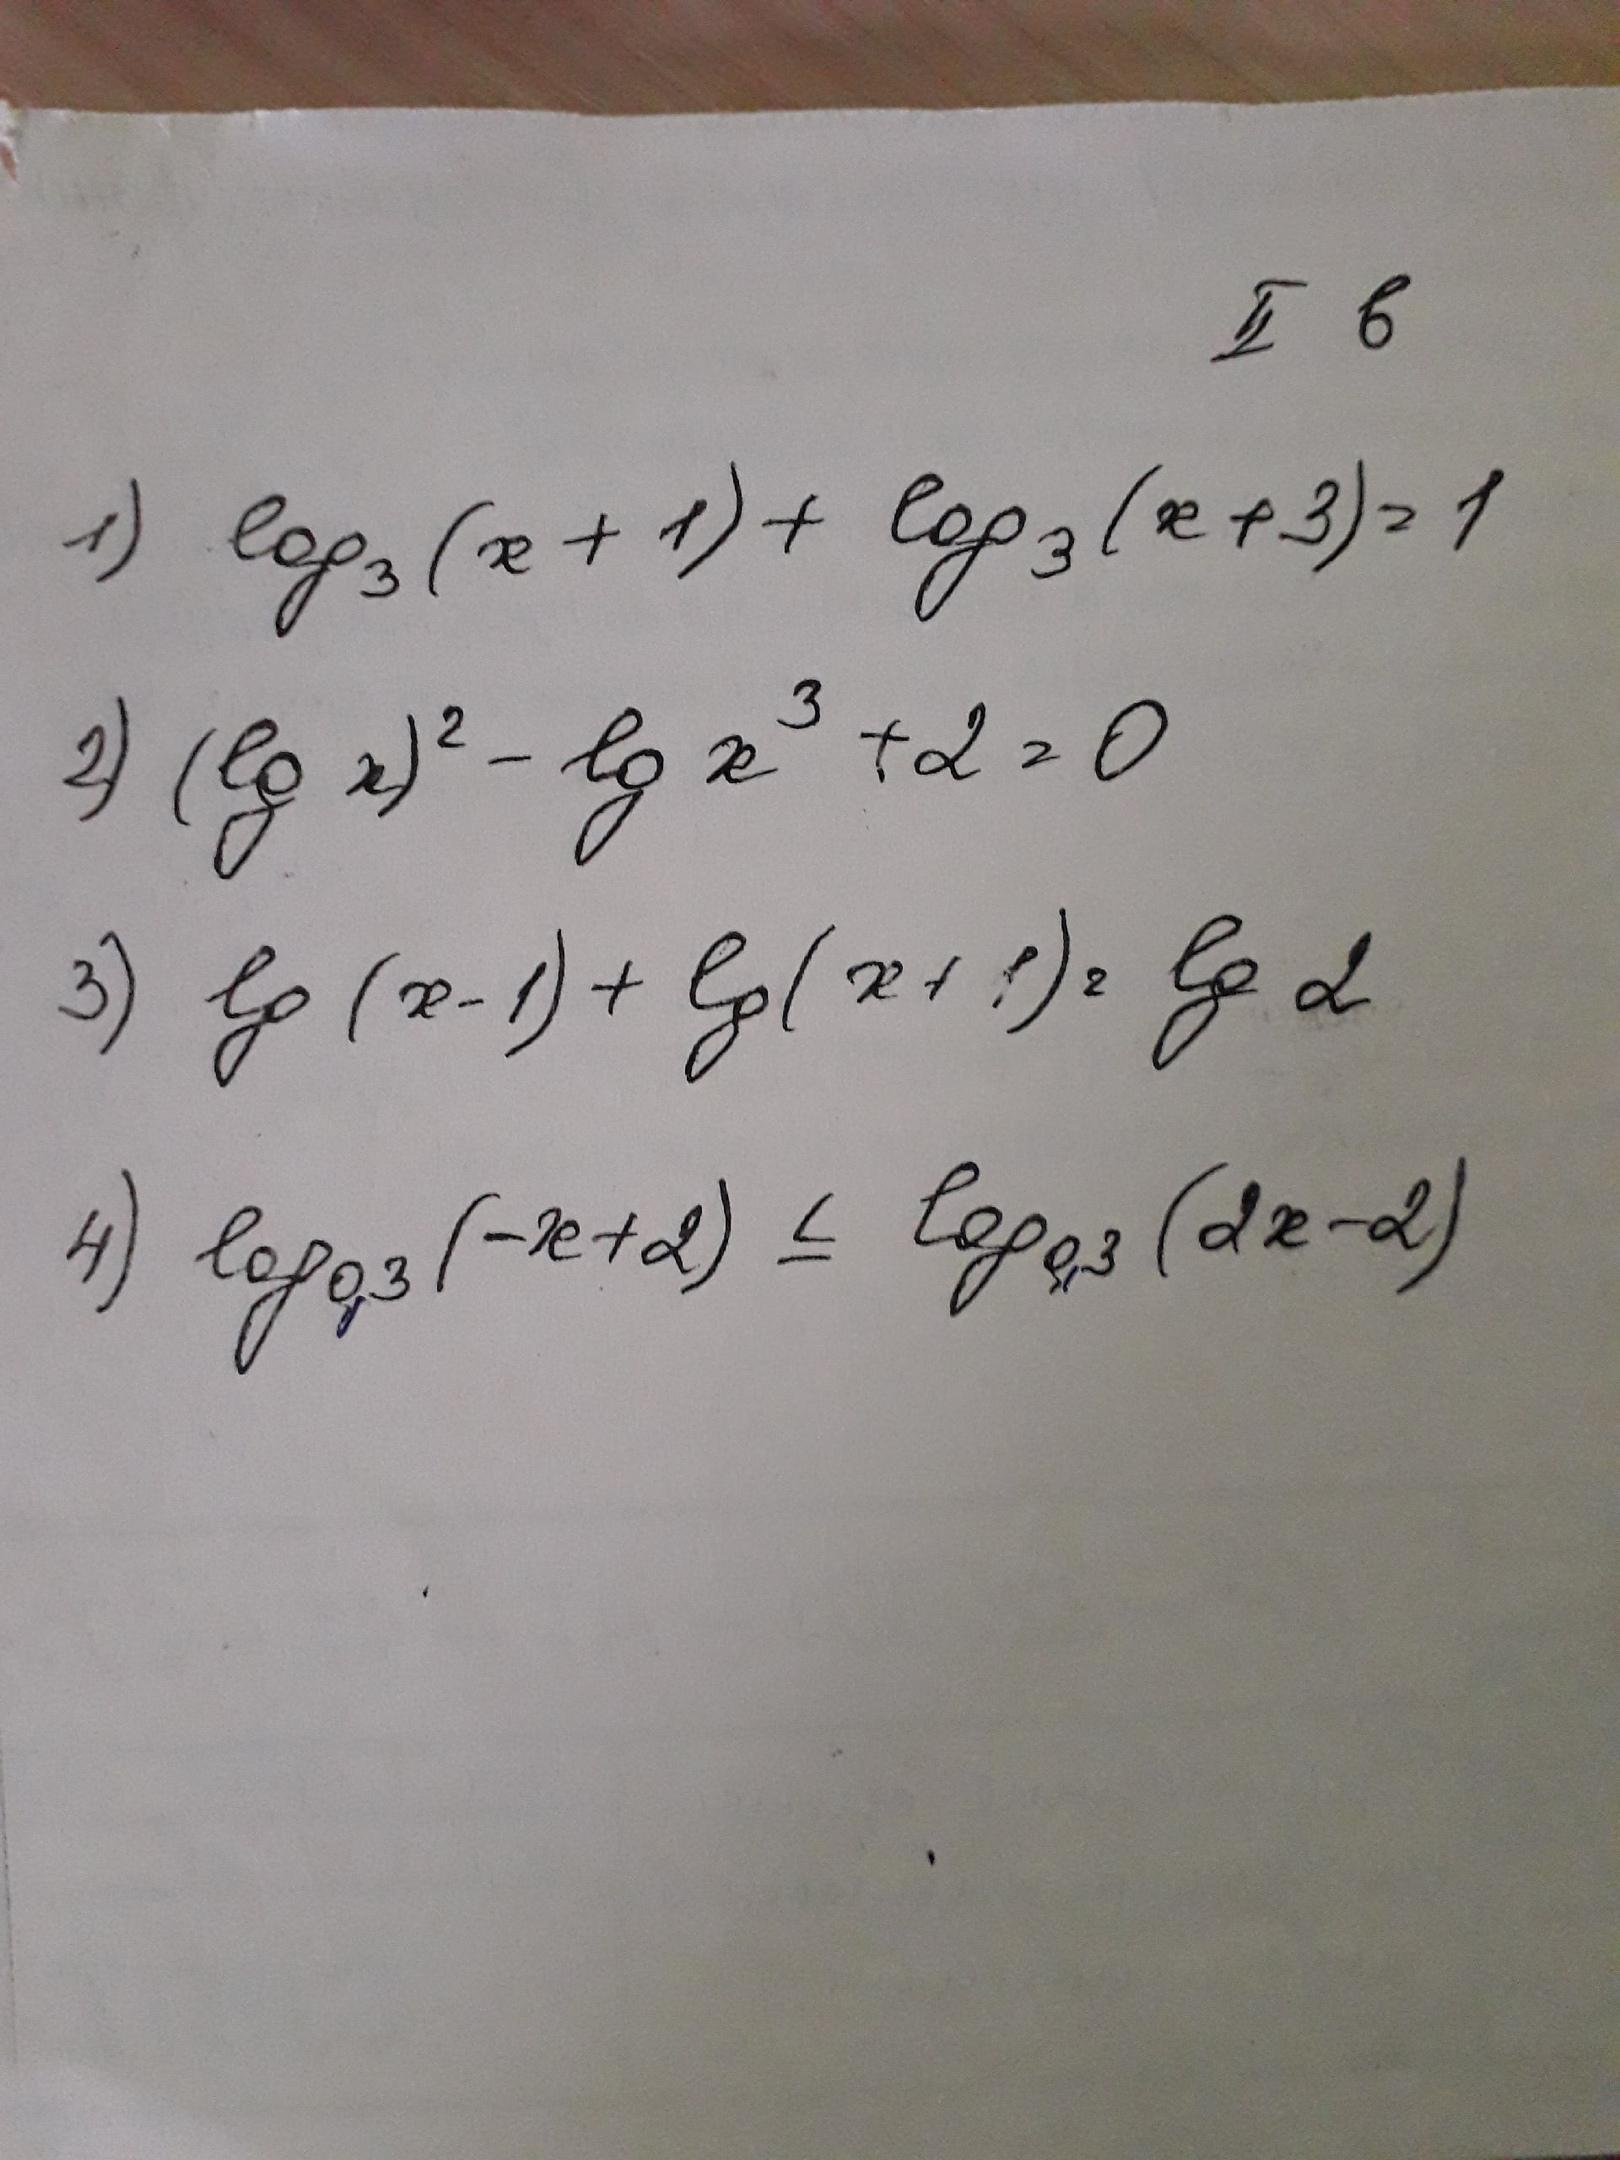 II в
1) log₃(x+1)+ log₃(x+3)=1
2) (lg x)² - lg x³ +2=0
3) lg (x-1)+ lg(x+1)= lg 2
4) log₀,₃(-x+2) ≤ log₀,₃(2x-2)